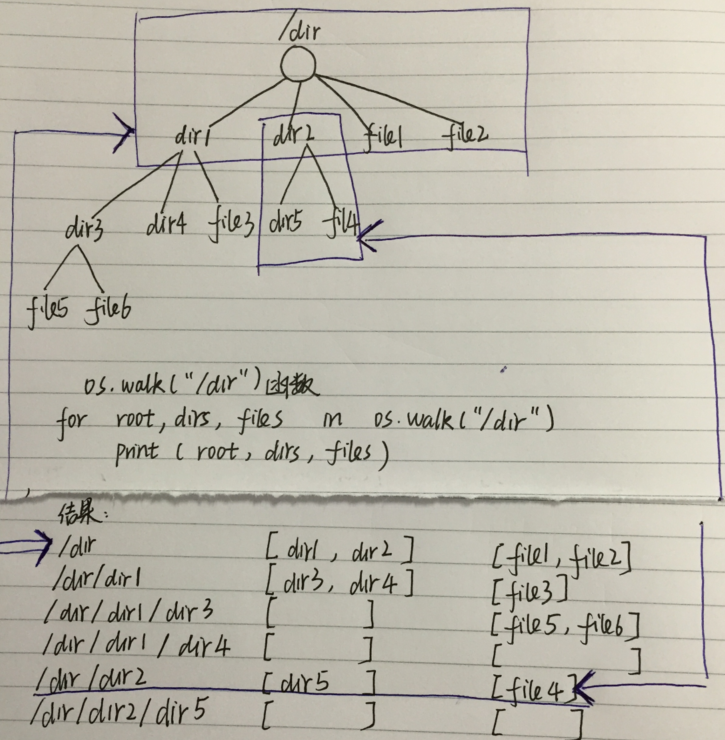 /dir
dir1 dir2 file1 file2
dir3 dir4 file3 dir5 fil4
file5 file6
os.walk("/dir")函数
for root, dirs, files in os.walk("/dir")
print (root, dirs, files)
结果:
/dir [dir1, dir2] [file1, file2]
/dir/dir1 [dir3, dir4] [file3]
/dir/dir1/dir3 [ ] [file5, file6]
/dir/dir1/dir4 [ ] [ ]
/dir/dir2 [dir5 ] [file4]
/dir/dir2/dir5 [ ] [ ]